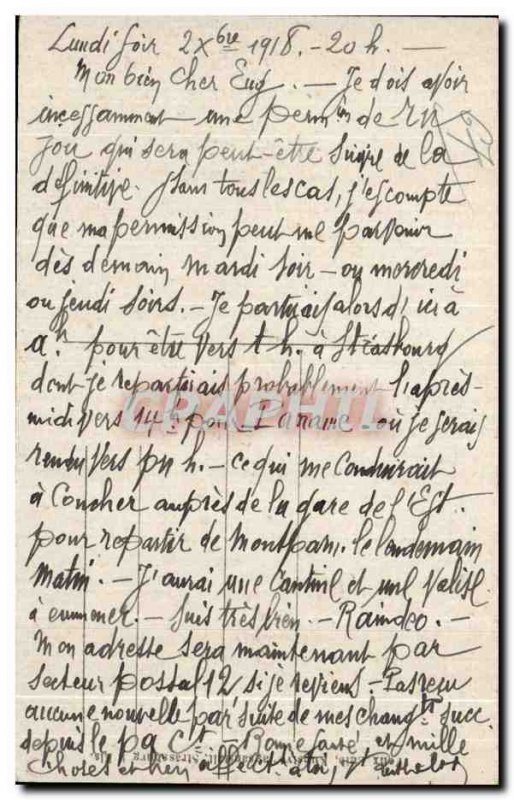 Lundi soir 2 Xbre 1918. - 20 h. -
Mon bien cher Eug. - Je dois avoir
incessamment une permon de
jou qui sera peut-être suivie de la
définitive. Dans tous les cas, j'escompte
que ma permission peut me parvenir
dès demain mardi soir - ou mercredi
ou jeudi soirs. - Je partirais alors d'ici à
h. pour être vers 1 h. à Strasbourg
dont je repartirais probablement l'après-
midi vers 14 h. pour où je serais
rendu vers h. - ce qui me conduirait
à coucher auprès de la gare de l'Est.
pour repartir de Montparn. le lendemain
matin. - J'aurai une cantine et une valise
à emmener. - Suis très bien. -
Mon adresse sera maintenant par
secteur postal 12 si je reviens. - Pas reçu
aucune nouvelle par suite de mes changts succ.
depuis le - Bonne santé et mille
choses et bien affect. à toi,